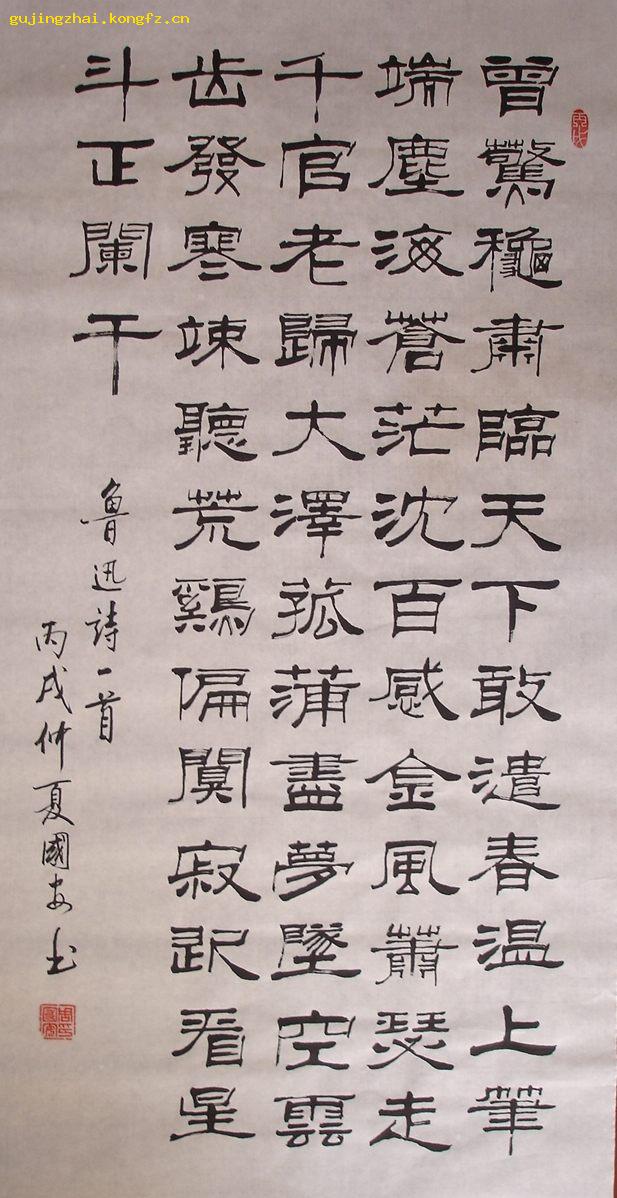 gujingzhai.kongfz.cn
曾驚龝肅臨天下敢遣春温上筆
端塵海蒼茫沈百感金風蕭瑟走
千官老歸大澤菰蒲盡夢墜空雲
齿發寒竦聽荒鷄偏闃寂起看星
斗正闌干
魯迅詩一首
丙戌仲夏國安书